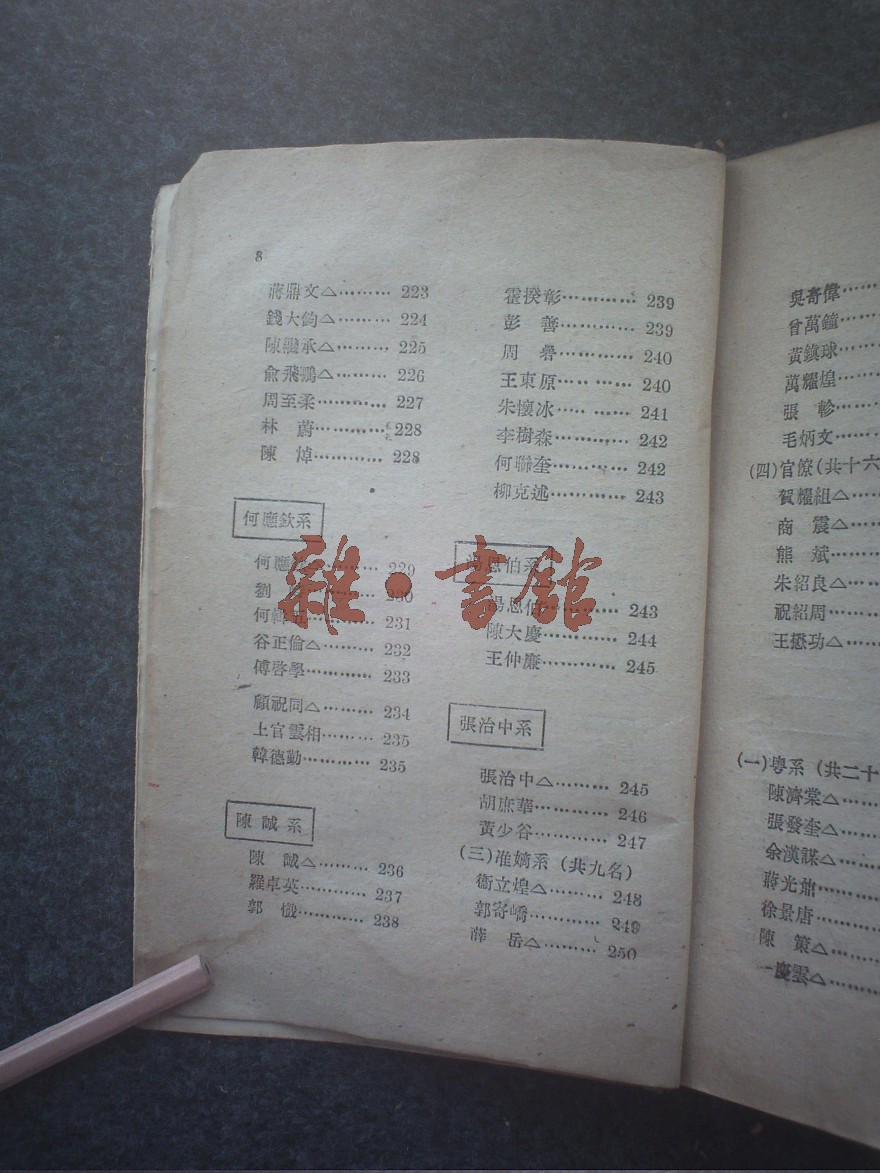 8
蔣鼎文△………223
錢大鈞△………224
陳繼承△………225
俞飛鵬△………226
周至柔…………227
林 蔚…………228
陳 焯…………228
何應欽系
何應 …………229
劉 230
何 …………231
谷正倫△………232
傅啓學…………233
顧祝同△………234
上官雲相………235
韓德勤…………235
陳誠系
陳 誠△………236
羅卓英…………237
郭 懺…………238
霍揆彰…………239
彭 善…………239
周 碞…………240
王東原…………240
朱懷冰…………241
李樹森…………242
何聯奎…………242
柳克述…………243
湯恩伯系
湯恩伯…………243
陳大慶…………244
王仲廉…………245
張治中系
張治中△………245
胡庶華…………246
黃少谷…………247
(三)准嫡系(共九名)
衞立煌△………248
郭寄嶠…………249
薛 岳△………250
雜·書館
吳奇偉……
曾萬鐘……
黃鎮球……
萬耀煌……
張 軫……
毛炳文……
(四)官僚(共十六
賀耀組△…
商 震△…
熊 斌……
朱紹良△…
祝紹周……
王懋功△…
(一)粵系(共二十
陳濟棠△…
張發奎△…
余漢謀△…
蔣光鼐……
徐景唐……
陳 策△…
慶雲△…